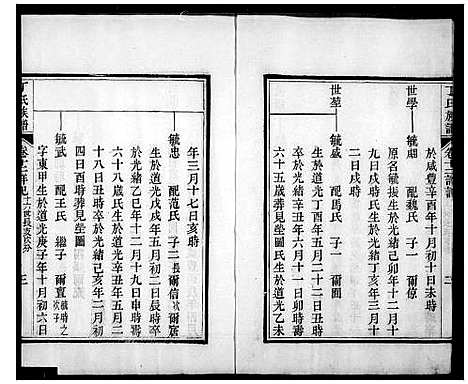 丁氏族譜
世學
毓
配魏氏 子一 爾
於咸豐辛酉年十月初十日未時
原名毓振生於光緒己卯年十二月十
九日戌時氏生於光緒丁亥年三月十
二日戌時
世堃
毓盛 配馬氏 子一 爾
生於道光丁酉年五月二十二日戌時
卒於光緒辛丑年六月十一日時壽
六十五歲葬見塋圖氏生於道光乙未
年三月十七日亥時
毓忠 配范氏 子二 長爾信 次爾宸
生於道光戊戌年五月初三日辰時卒
於光緒乙巳年十二月十九日申時壽
六十八歲氏生於道光丁亥年五月二
十八日丑時卒於光緒己亥年二月初
四日酉時葬見塋圖
毓武 配王氏 繼子 爾直 毓時之次子
字東甲生於道光庚子年十月初六日
丁氏族譜
三